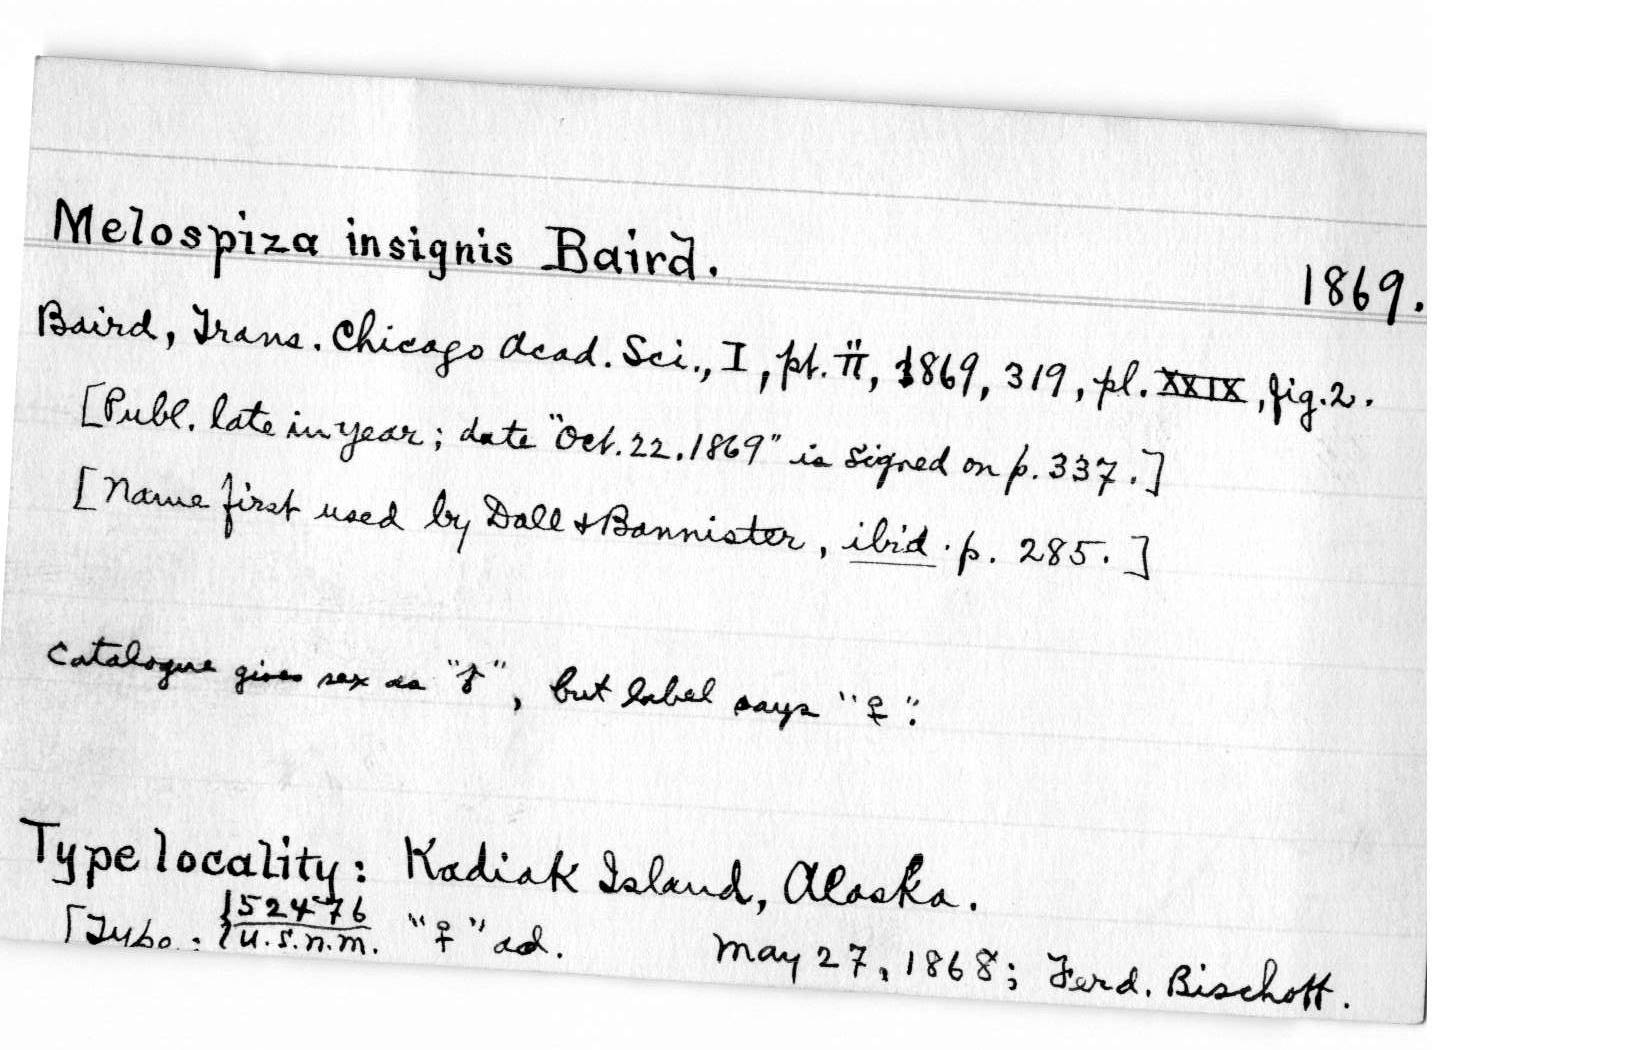 Melospiza insignis Baird. 1869.
Baird, Trans. Chicago Acad. Sci., I, pt. II, 1869, 319, pl. XXIX, fig. 2.
[Publ. late in year; date "Oct. 22. 1869" is signed on p. 337.]
[Name first used by Dall & Bannister, ibid. p. 285.]
Catalogue gives sex as "♂", but label says "♀".
Type locality: Kadiak Island, Alaska.
[Type: {52476
{U.S.N.M. "♀" ad. May 27, 1868; Ferd. Bischoff.